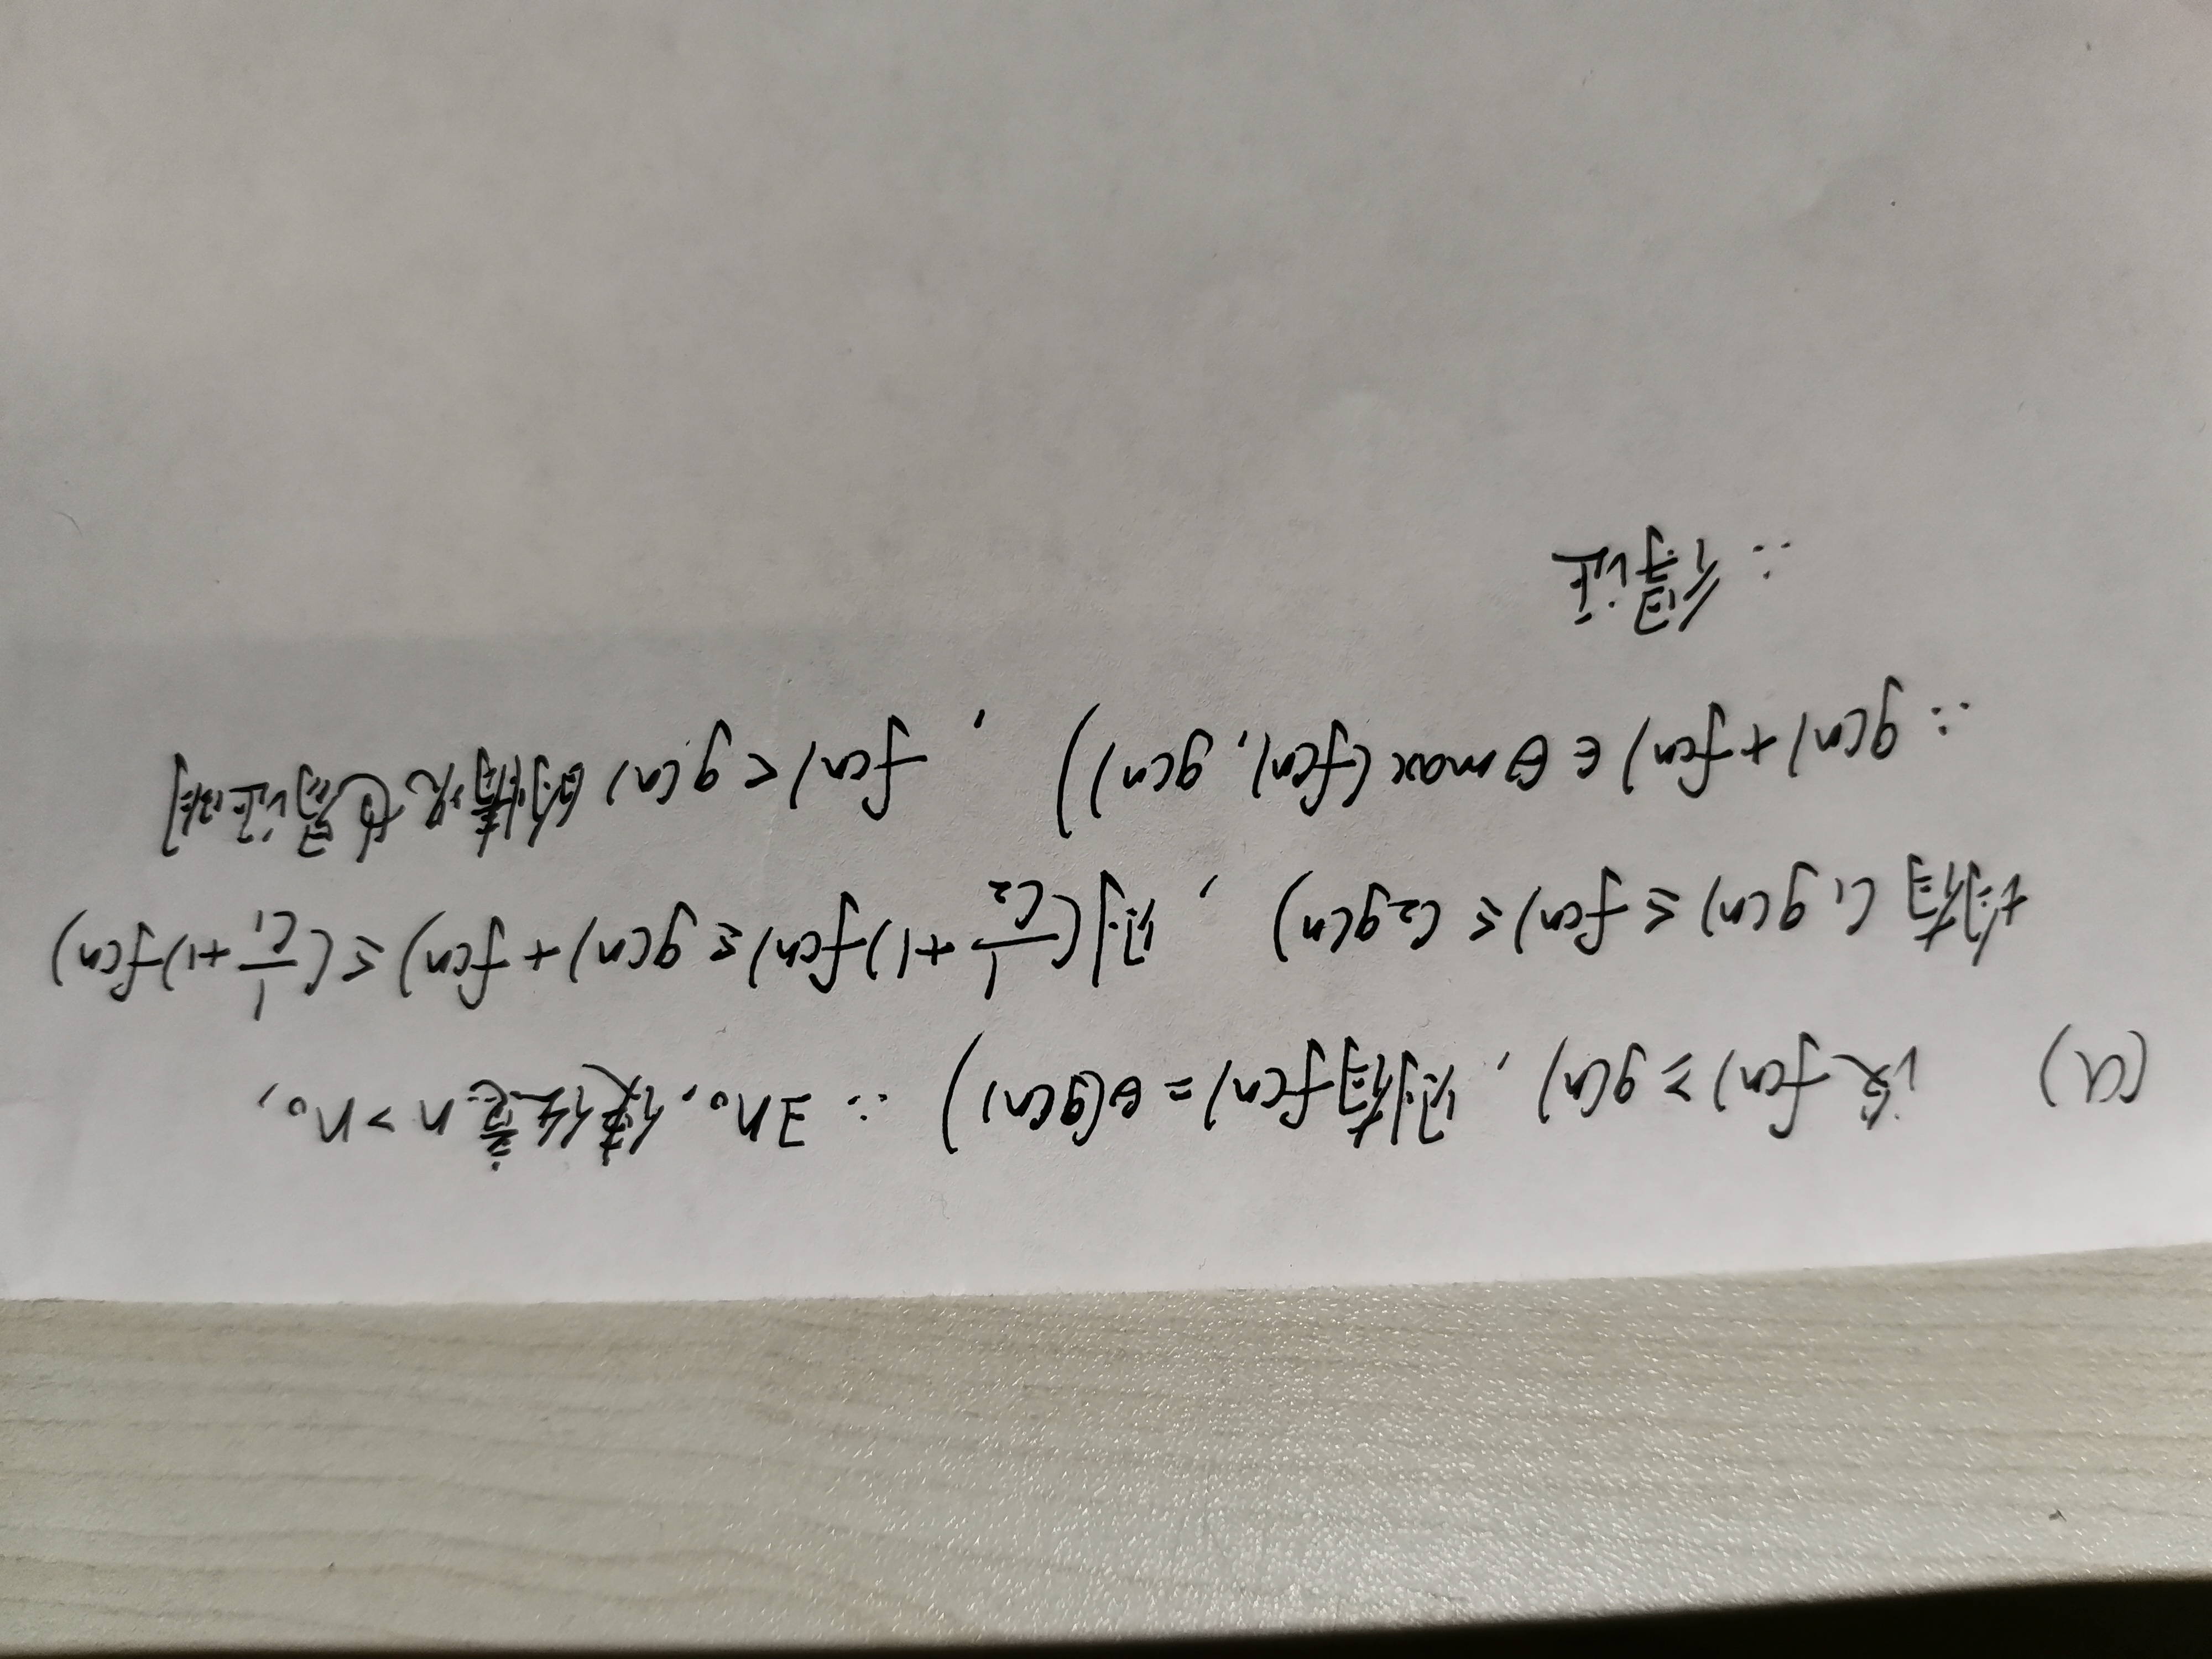 (a) 设 f(n) ≥ g(n), 则有 f(n) = Θ(g(n)) ∴ ∃n₀, 使任意 n > n₀,
均有 C₁g(n) ≤ f(n) ≤ C₂g(n), 则 (1/C₂ + 1) f(n) ≤ g(n) + f(n) ≤ (1/C₁ + 1) f(n)
∴ g(n) + f(n) ∈ Θ max (f(n), g(n)), f(n) < g(n) 的情况也易证明
∴ 得证